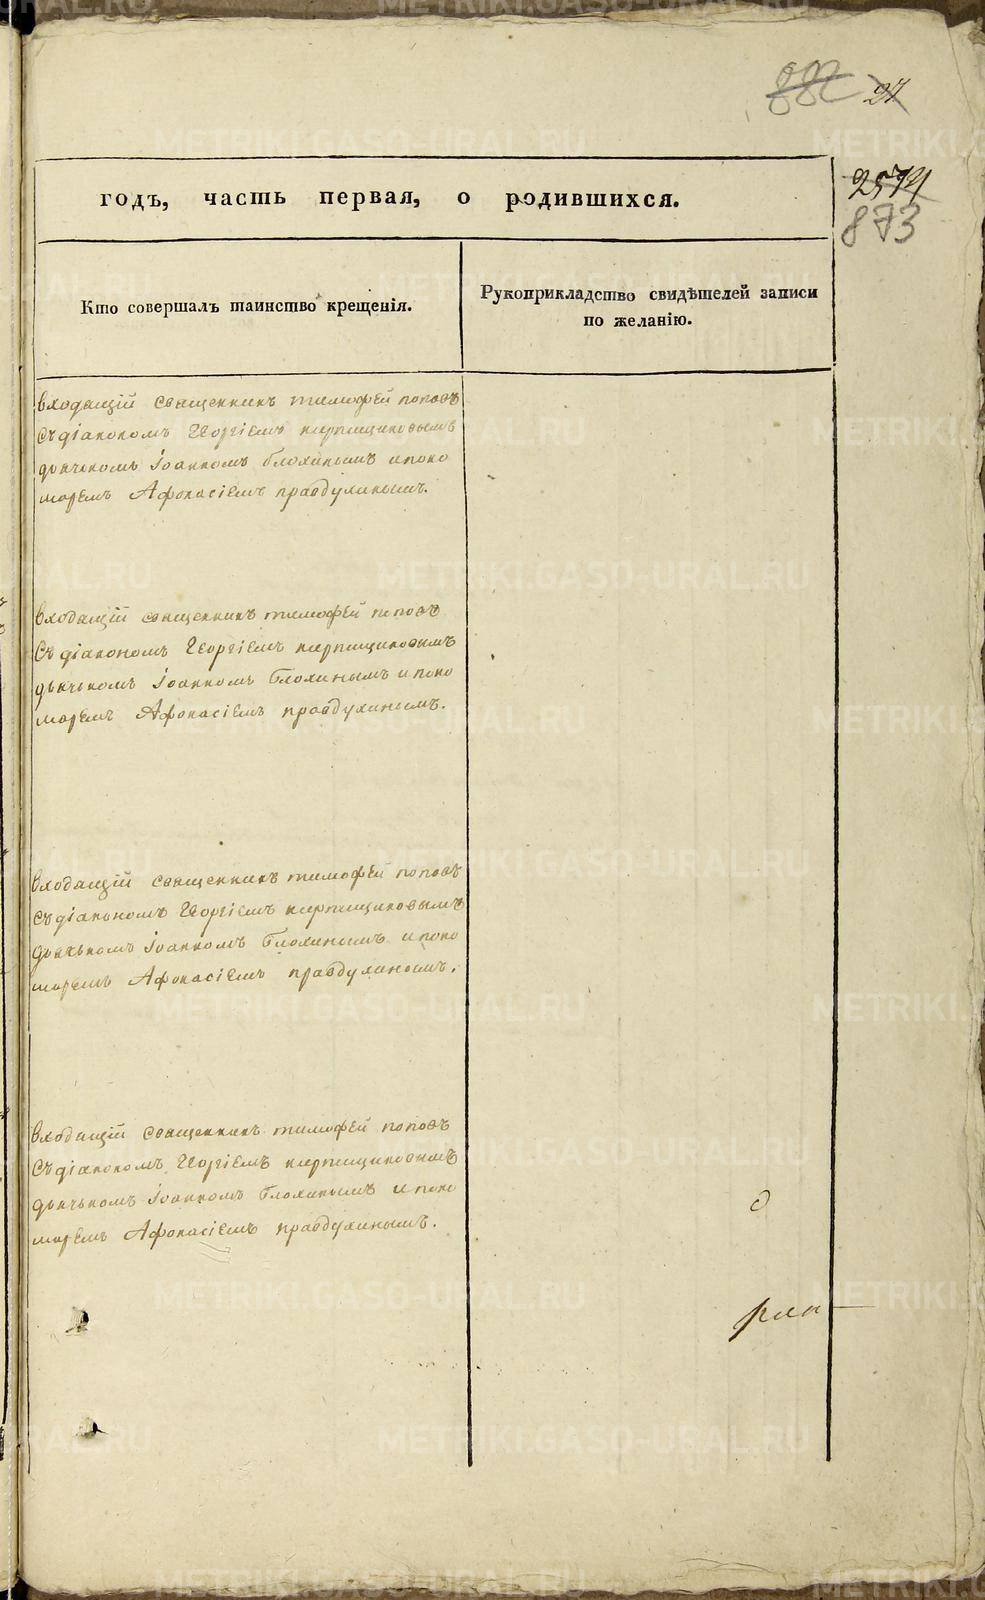 882 27
годъ, часть первая, о родившихся.
2574
873
Кто совершалъ таинство крещенія.
Рукоприкладство свидѣтелей записи
по желанію.
входящій священникъ тимофей поповъ
съ діакономъ Георгіемъ кирпищиковымъ
дьячкомъ Іоанномъ блохинымъ и поно
маремъ Афонасіемъ правдухинымъ.
входящій священникъ тимофей поповъ
съ діакономъ Георгіемъ кирпищиковымъ
дьячкомъ Іоанномъ блохинымъ и поно
маремъ Афонасіемъ правдухинымъ.
входящій священникъ тимофей поповъ
съ діакономъ Георгіемъ кирпищиковымъ
дьячкомъ Іоанномъ блохинымъ и поно
маремъ Афонасіемъ правдухиномъ.
входящій священникъ тимофей поповъ
съ діакономъ Георгіемъ кирпищиковымъ
дьячкомъ Іоанномъ блохинымъ и поно
маремъ Афонасіемъ правдухинымъ.
METRIKI.GASO-URAL.RU